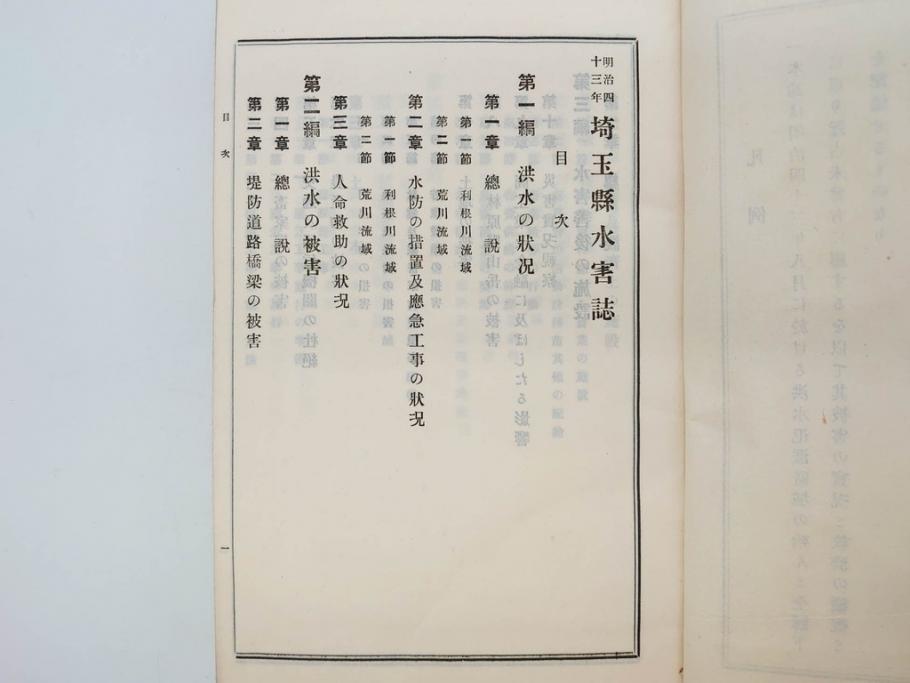 明治四十三年 埼玉縣水害誌
目次
第一編 洪水の狀况
第一章 總說
第一節 利根川流域
第二節 荒川流域
第二章 水防の措置及應急工事の狀况
第一節 利根川流域
第二節 荒川流域
第三章 人命救助の狀况
第二編 洪水の被害
第一章 總說
第二章 堤防道路橋梁の被害
目次
一